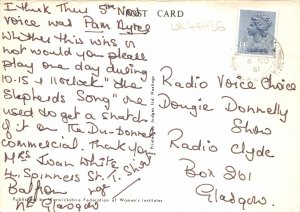 I think Thurs 5th Nov
voice was Pam Ayres
POST CARD
Whether this wins or
not would you please
play one day during
10.15 & 11 o'clock "the
Shepherds Song" one
used to get a snatch
of it on the Du-
commercial. Thank you
Mrs Joan White
4 Spinners St. T. Shirt
Balfron
Nr Glasgow
Radio Voice Choice
Dougie Donnelly
Show
Radio Clyde
Box 261
Glasgow.
Published by Warwickshire Federation of Women's Institutes